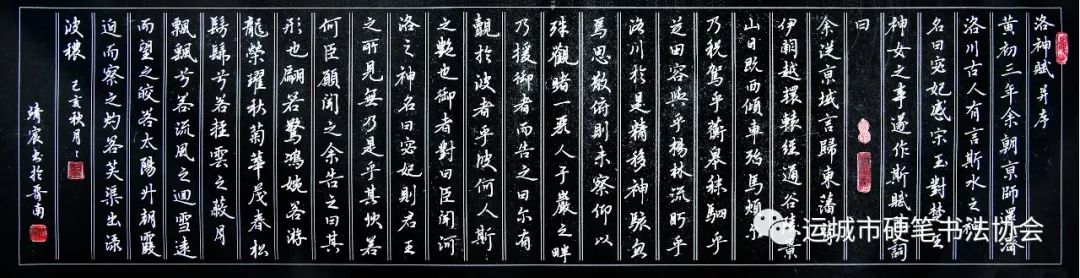 洛神賦 并序
黃初三年余朝京師還濟
洛川古人有言斯水之神
名曰宓妃感宋玉對楚王
神女之事遂作斯賦其詞
曰
余従京域言歸東藩背
伊闕越轘轅經通谷陵景
山日既西傾車殆馬煩尔
乃税駕乎蘅皋秣駟乎
芝田容與乎楊林流眄乎
洛川於是精移神駭忽
焉思散俯則未察仰以
殊觀睹一麗人于巖之畔
乃援御者而告之曰尔有
覿於彼者乎彼何人斯
之艷也御者對曰臣聞河
洛之神名曰宓妃則君王
之所見無乃是乎其狀若
何臣願聞之余告之曰其
形也翩若驚鴻婉若游
龍榮曜秋菊華茂春松
髣髴兮若輕雲之蔽月
飄飄兮若流風之迴雪遠
而望之皎若太陽升朝霞
迫而察之灼若芙渠出淥
波穠 己亥秋月
靖宸書於晉南
运城市硬笔书法协会